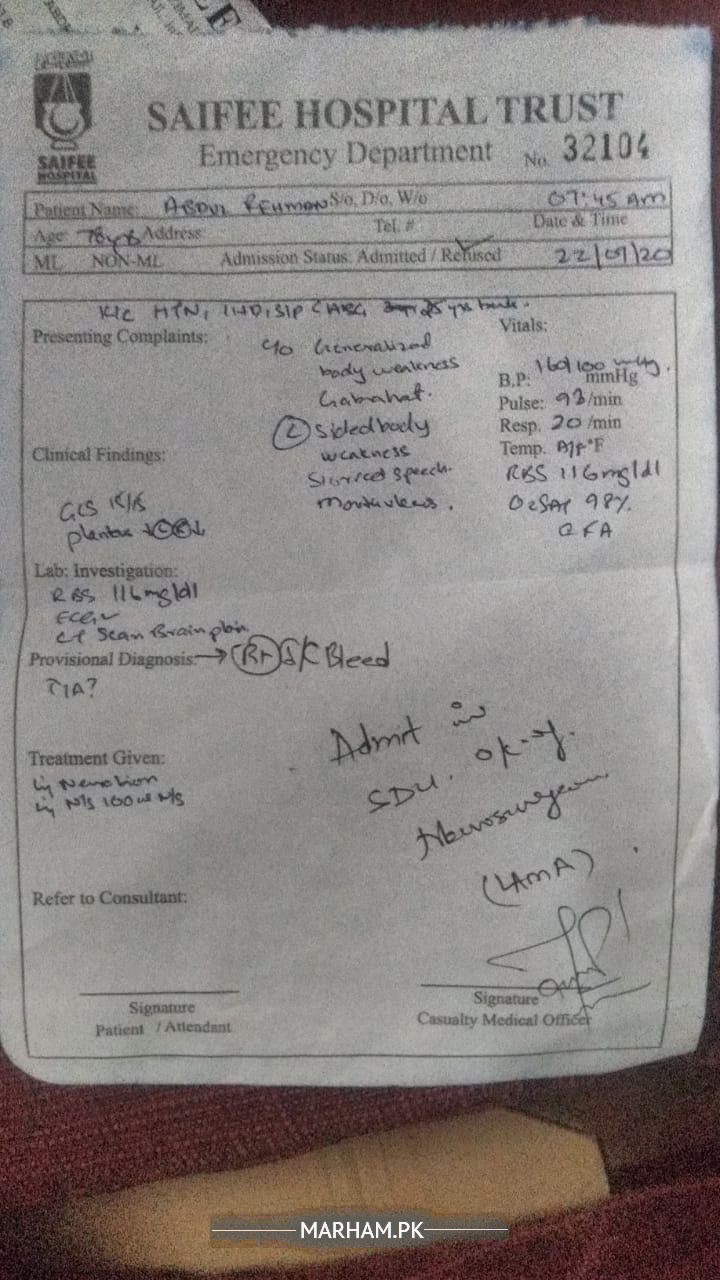 SAIFEE HOSPITAL TRUST
SAIFEE
HOSPITAL
Emergency Department No. 32104
Patient Name: ABDUL REHMAN S/o, D/o, W/o 07:45 AM
Age: 78yrs Address: Tel. # Date & Time
ML NON-ML Admission Status: Admitted / Refused 22/07/20
K/C HTN, IHD, S/P CABG 25 yrs back.
Presenting Complaints: Vitals:
C/O Generalized
body weakness
Gabrahat.
(L) sided body
weakness
Slurred speech.
B.P: 160/100 mmHg.
mmHg
Pulse: 93/min
Resp. 20/min
Temp. A/F °F
RBS 116mg/dl
O2SAT 98%
Clinical Findings:
GCS 15/15
plantus
Lab: Investigation:
RBS 116mg/dl
ECG
CT Scan Brain plain
Provisional Diagnosis: → (Rt) Bleed
TIA?
Admit in
SDU.
Neurosurgeon
(LAMA)
Treatment Given:
N/S 100 N/S
Refer to Consultant:
Signature
Patient / Attendant
Signature
Casualty Medical Officer
MARHAM.PK